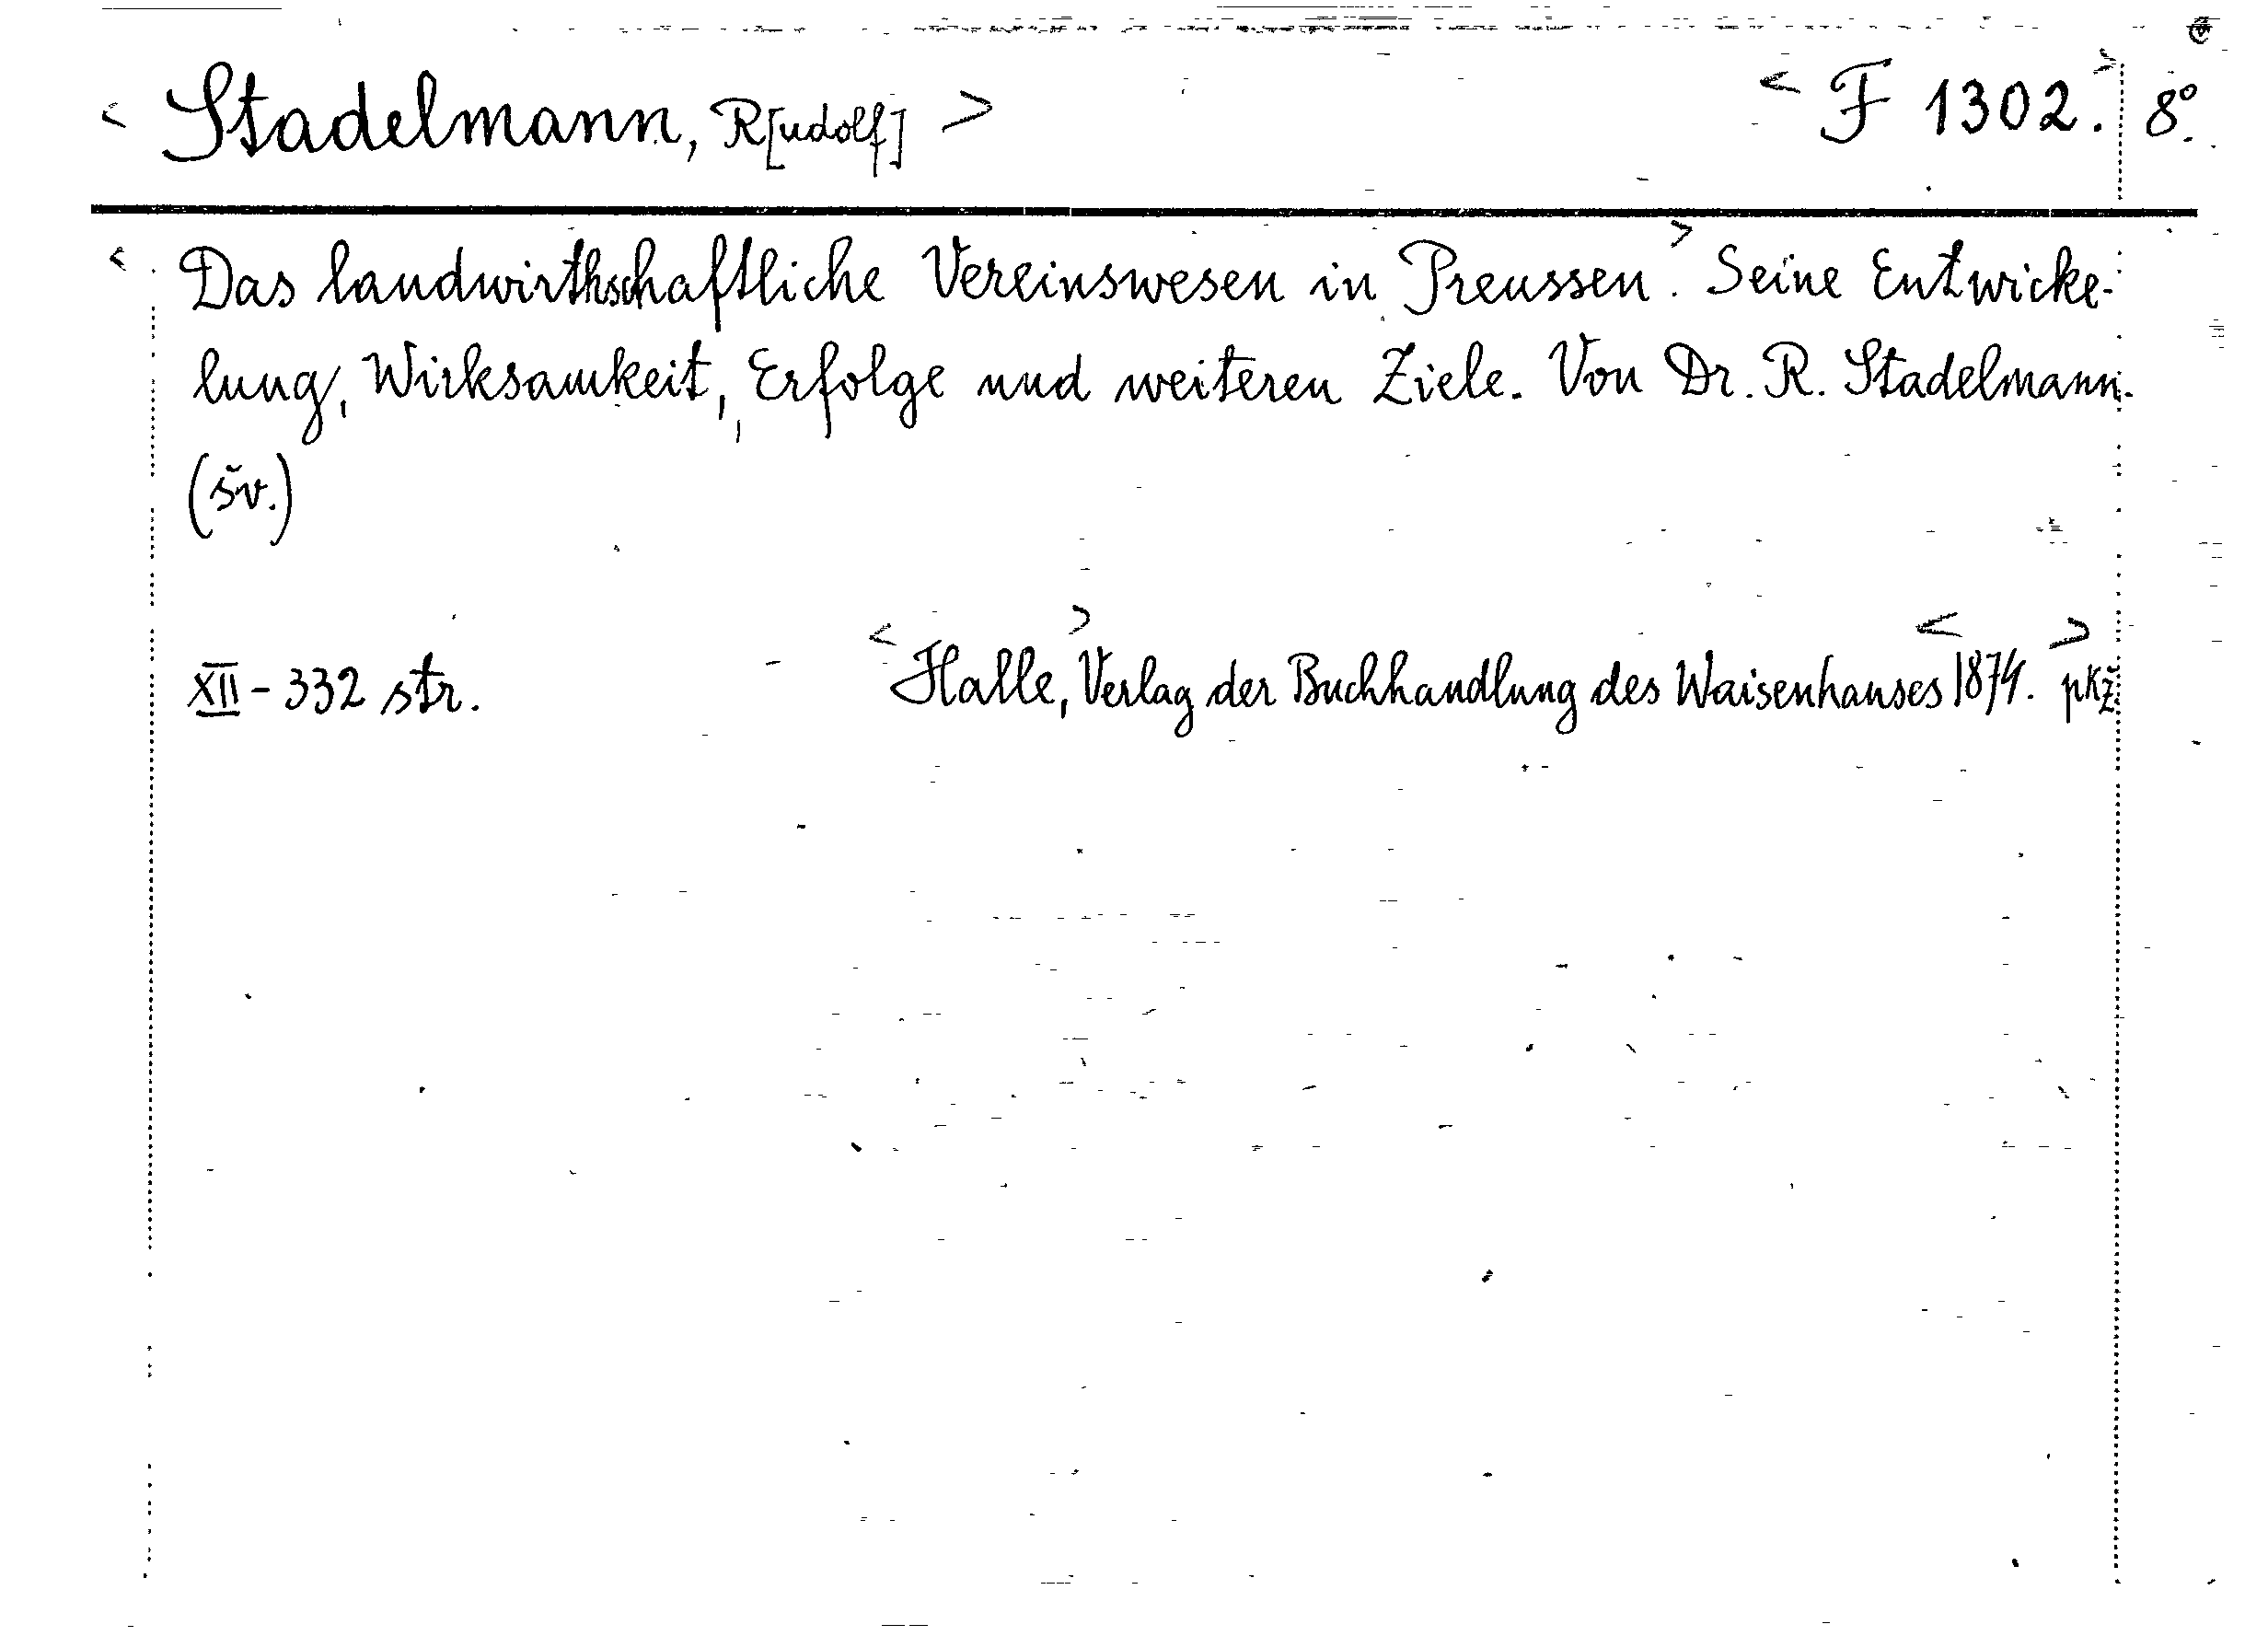 < Stadelmann, R[udolf] > < F 1302. > 8°.
< Das landwirthschaftliche Vereinswesen in Preussen. > Seine Entwicke-
lung, Wirksamkeit, Erfolge und weiteren Ziele. Von Dr. R. Stadelmann.
(šv.)
XII - 332 str. < Halle, > Verlag der Buchhandlung des Waisenhauses < 1874. > pKž